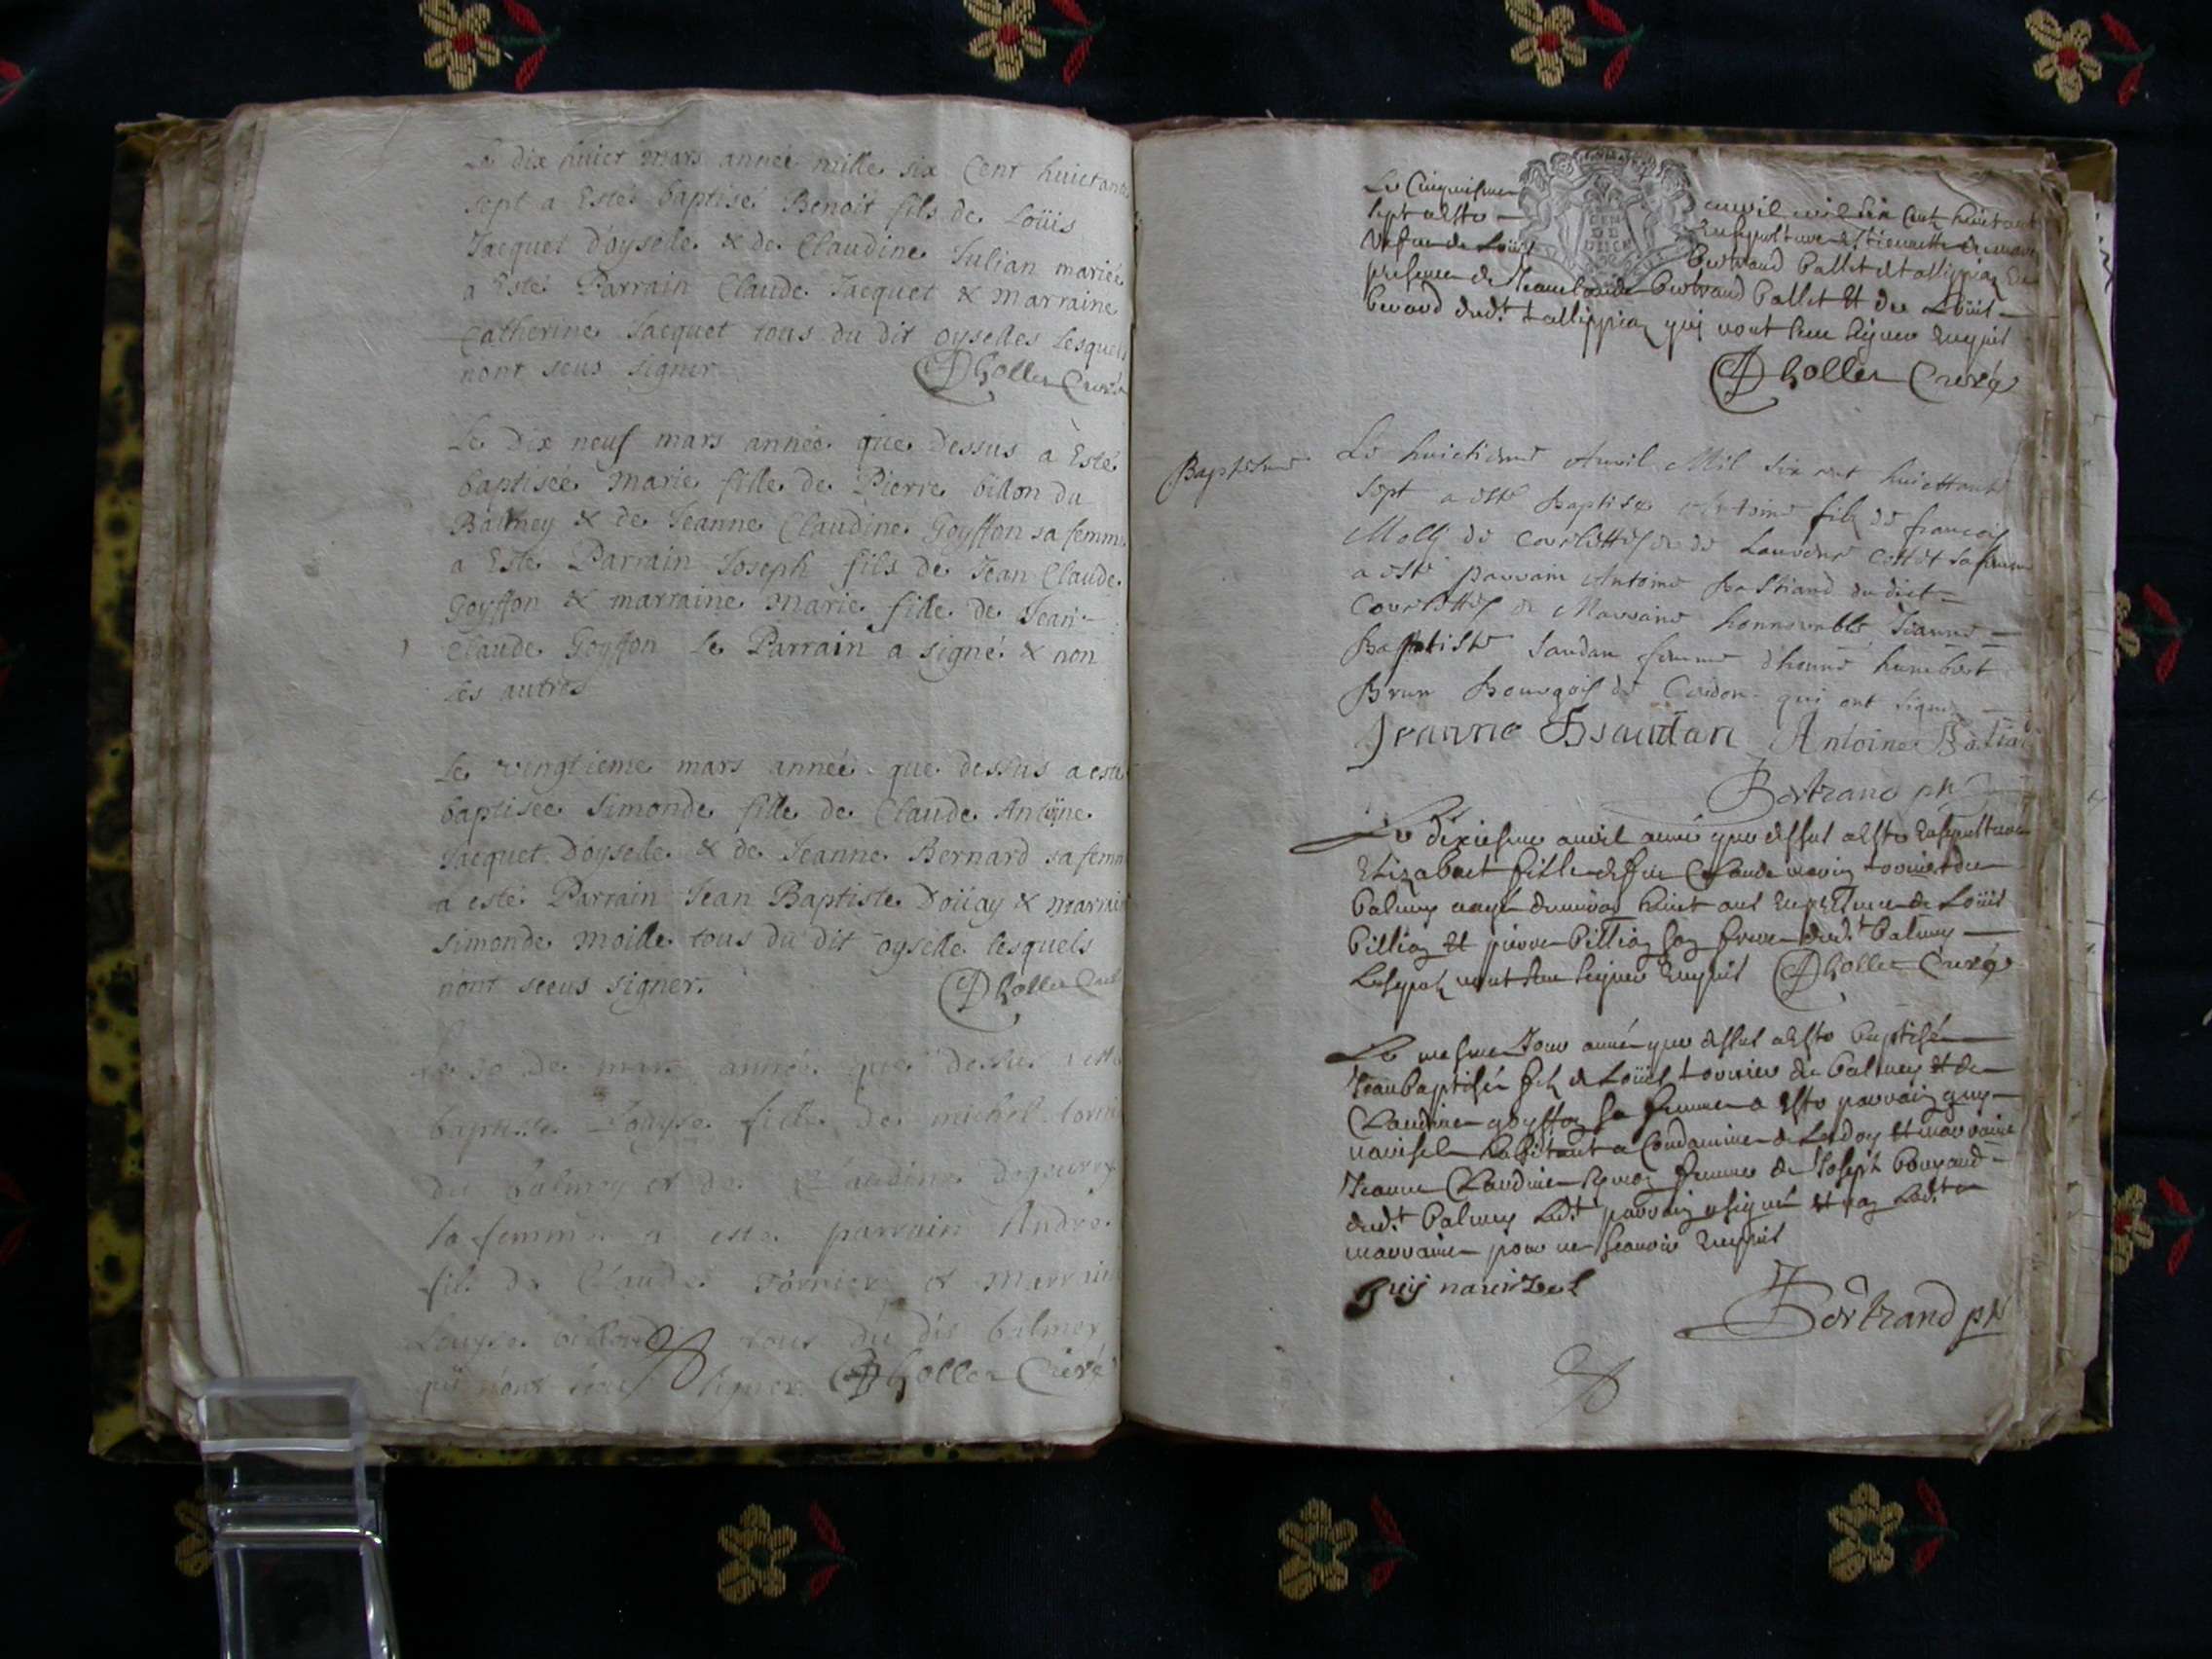 Le dix huict mars année mille six Cent huictante
sept a Esté baptisé Benoit fils de Loüis
Jacquet d'oyselle & de Claudine Julian mariée
a Esté Parrain Claude Jacquet & marraine
Catherine Jacquet tous du dit oyselles Lesquels
nont sceus signer
Goller Curé
Le Dix neuf mars année que Dessus à Esté
baptisée Marie fille de Pierre billon du
Balmey & de Jeanne Claudine Goyffon sa femme
a Esté Parrain Joseph fils de Jean Claude
Goyffon & marraine Marie fille de Jean-
Claude Goyffon Le Parrain a signé & non
Les autres
Le vingtieme mars année que dessus a esté
baptisée Simonde fille de Claude Antoïne
Jacquet D'oyselle & de Jeanne Bernard sa femme
a esté Parrain Jean Baptiste Doüay & marraine
Simonde Moille tous du dit oyselle lesquels
nont sceus signer.
Goller Curé
Le 30 de mars année que dessus a esté
baptisée Louyse fille de michel tornier
du balmey et de Claudine
sa femme a esté parrain André
fils de Claude Tornier et Marraine
Louyse billon tous du dit balmey
qui n'ont sceu signer Goller Curé
Le Cinquiesme avvil mil six cent huictante
sept a Esté Ensepulturé Estiennette
vefve de Loüis Bertrand Ballet de tallippiaz En
presence de Jeanclaude Bertrand Ballet Et de Loüis
berard dud.t tallippiaz qui n'ont sceu signer Enquis
Goller Curé
Baptesme
Le huictieme Avvil Mil six cent huictante
sept a esté Baptisé Antoine filz de francois
Molly de Courlettes et de Laurence Cottet sa femme
a esté parrain Antoine Bastiand du dict
Courlettes et Marraine honnorable Jeanne
Baptiste Saudan femme d'honne humbert
Brun Bourgois de Cerdon qui ont signé
Jeanne B saudan Antoine Batiad
Bertrand ptr
Le dixiesme avvil année que dessus a Esté Ensepulturée
Elizabet fille de feu Claude marin tornier du
Balmey aagée denviron huict ans En presence de Loüis
Billion Et pierre Billion son frere dud.t Balmey
Lesquels n'ont sceu signer Enquis Goller Curé
Le mesme Jour année que dessus a Esté Baptisé
Jeanbaptiste filz de Loüis tornier du Balmey Et de
Claudine goyffon sa femme a Esté parrain guy
naeisel habitant a Condamine de Ladoy Et marraine
Jeanne Claudine femme de Joseph
dud.t Balmey Led.t parrain a signé Et non Lad.te
marraine pour ne scavoir Enquis
Bertrand ptr